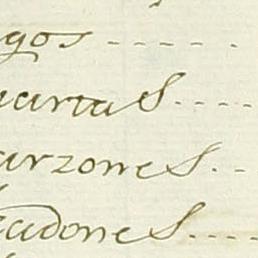 gos - - - - . .
uartas . - - - -
arzones . . -
zadones . - - -